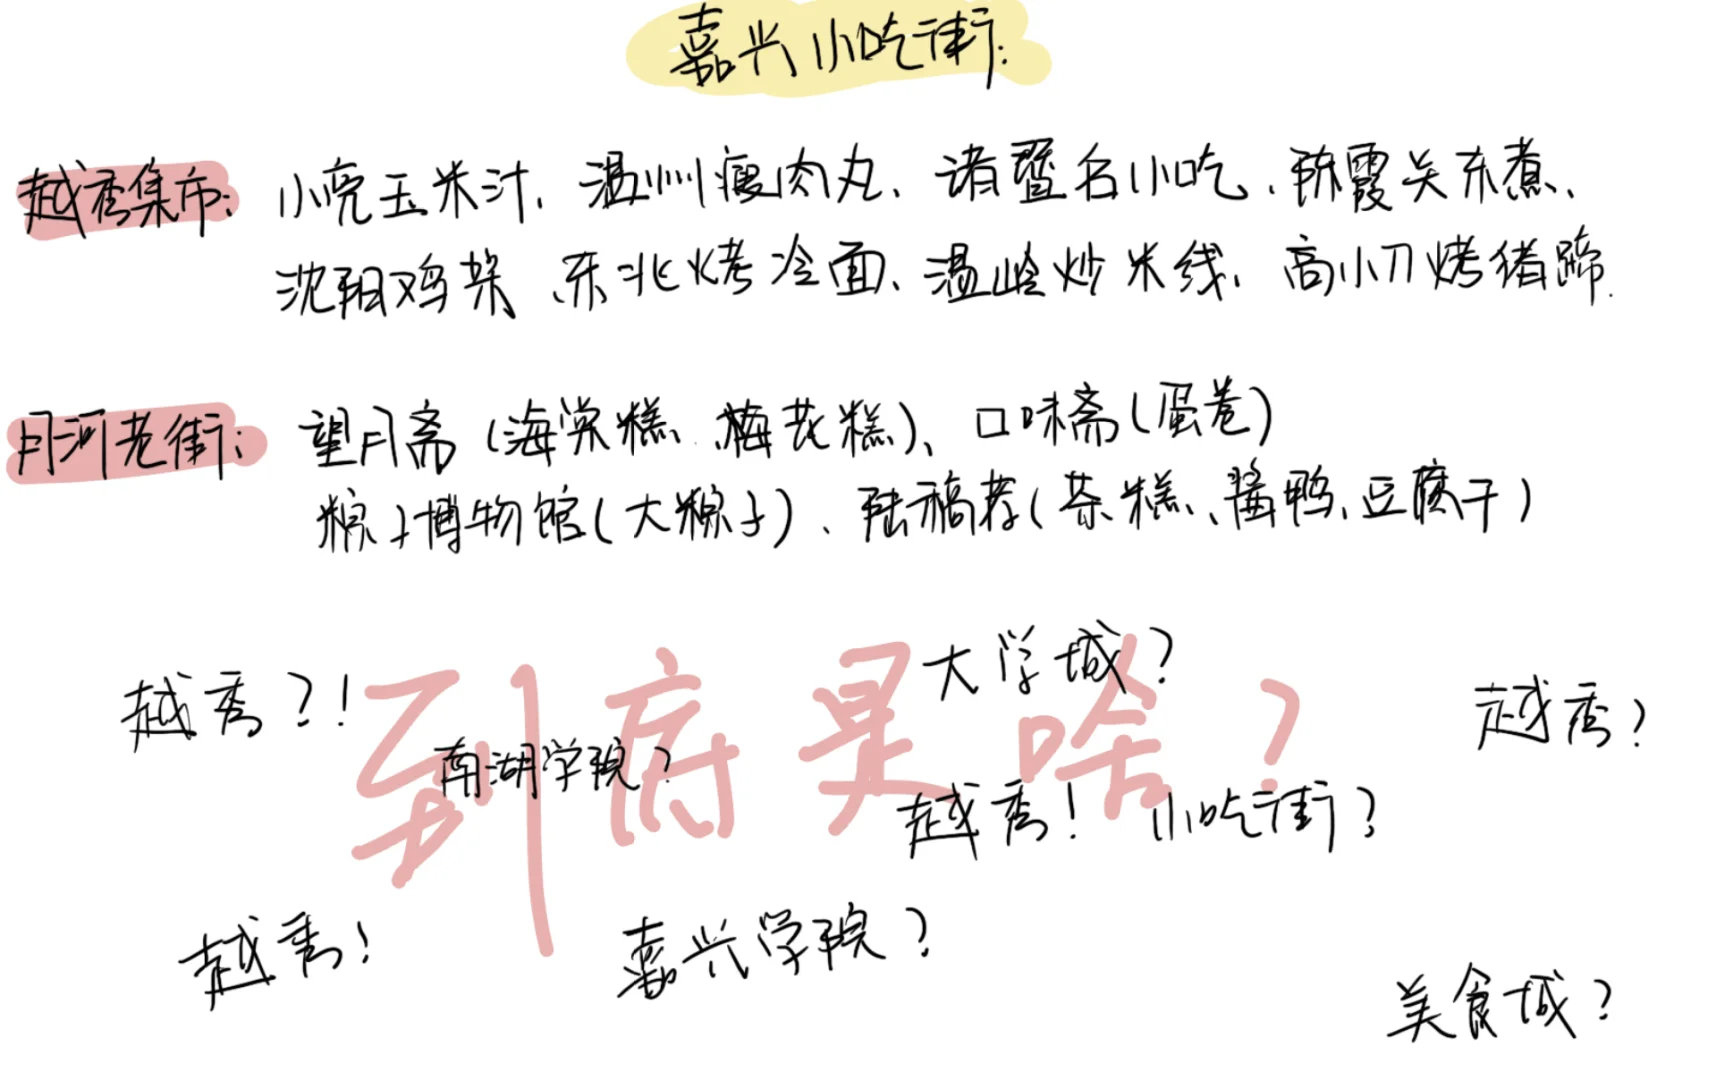 嘉兴小吃街:
越秀集市: 小亮玉米汁、温州瘦肉丸、诸暨名小吃、陈霞关东煮、
沈阳鸡架、东北烤冷面、温岭炒米线、高小刀烤猪蹄.
月河老街: 望月斋(海棠糕、梅花糕)、口味斋(蛋卷)
粽子博物馆(大粽子)、陆稿荐(茶糕、酱鸭、豆腐干)
到底是啥?
大学城?
越秀?!
越秀?
南湖学院?
越秀! 小吃街?
越秀!
嘉兴学院?
美食城?